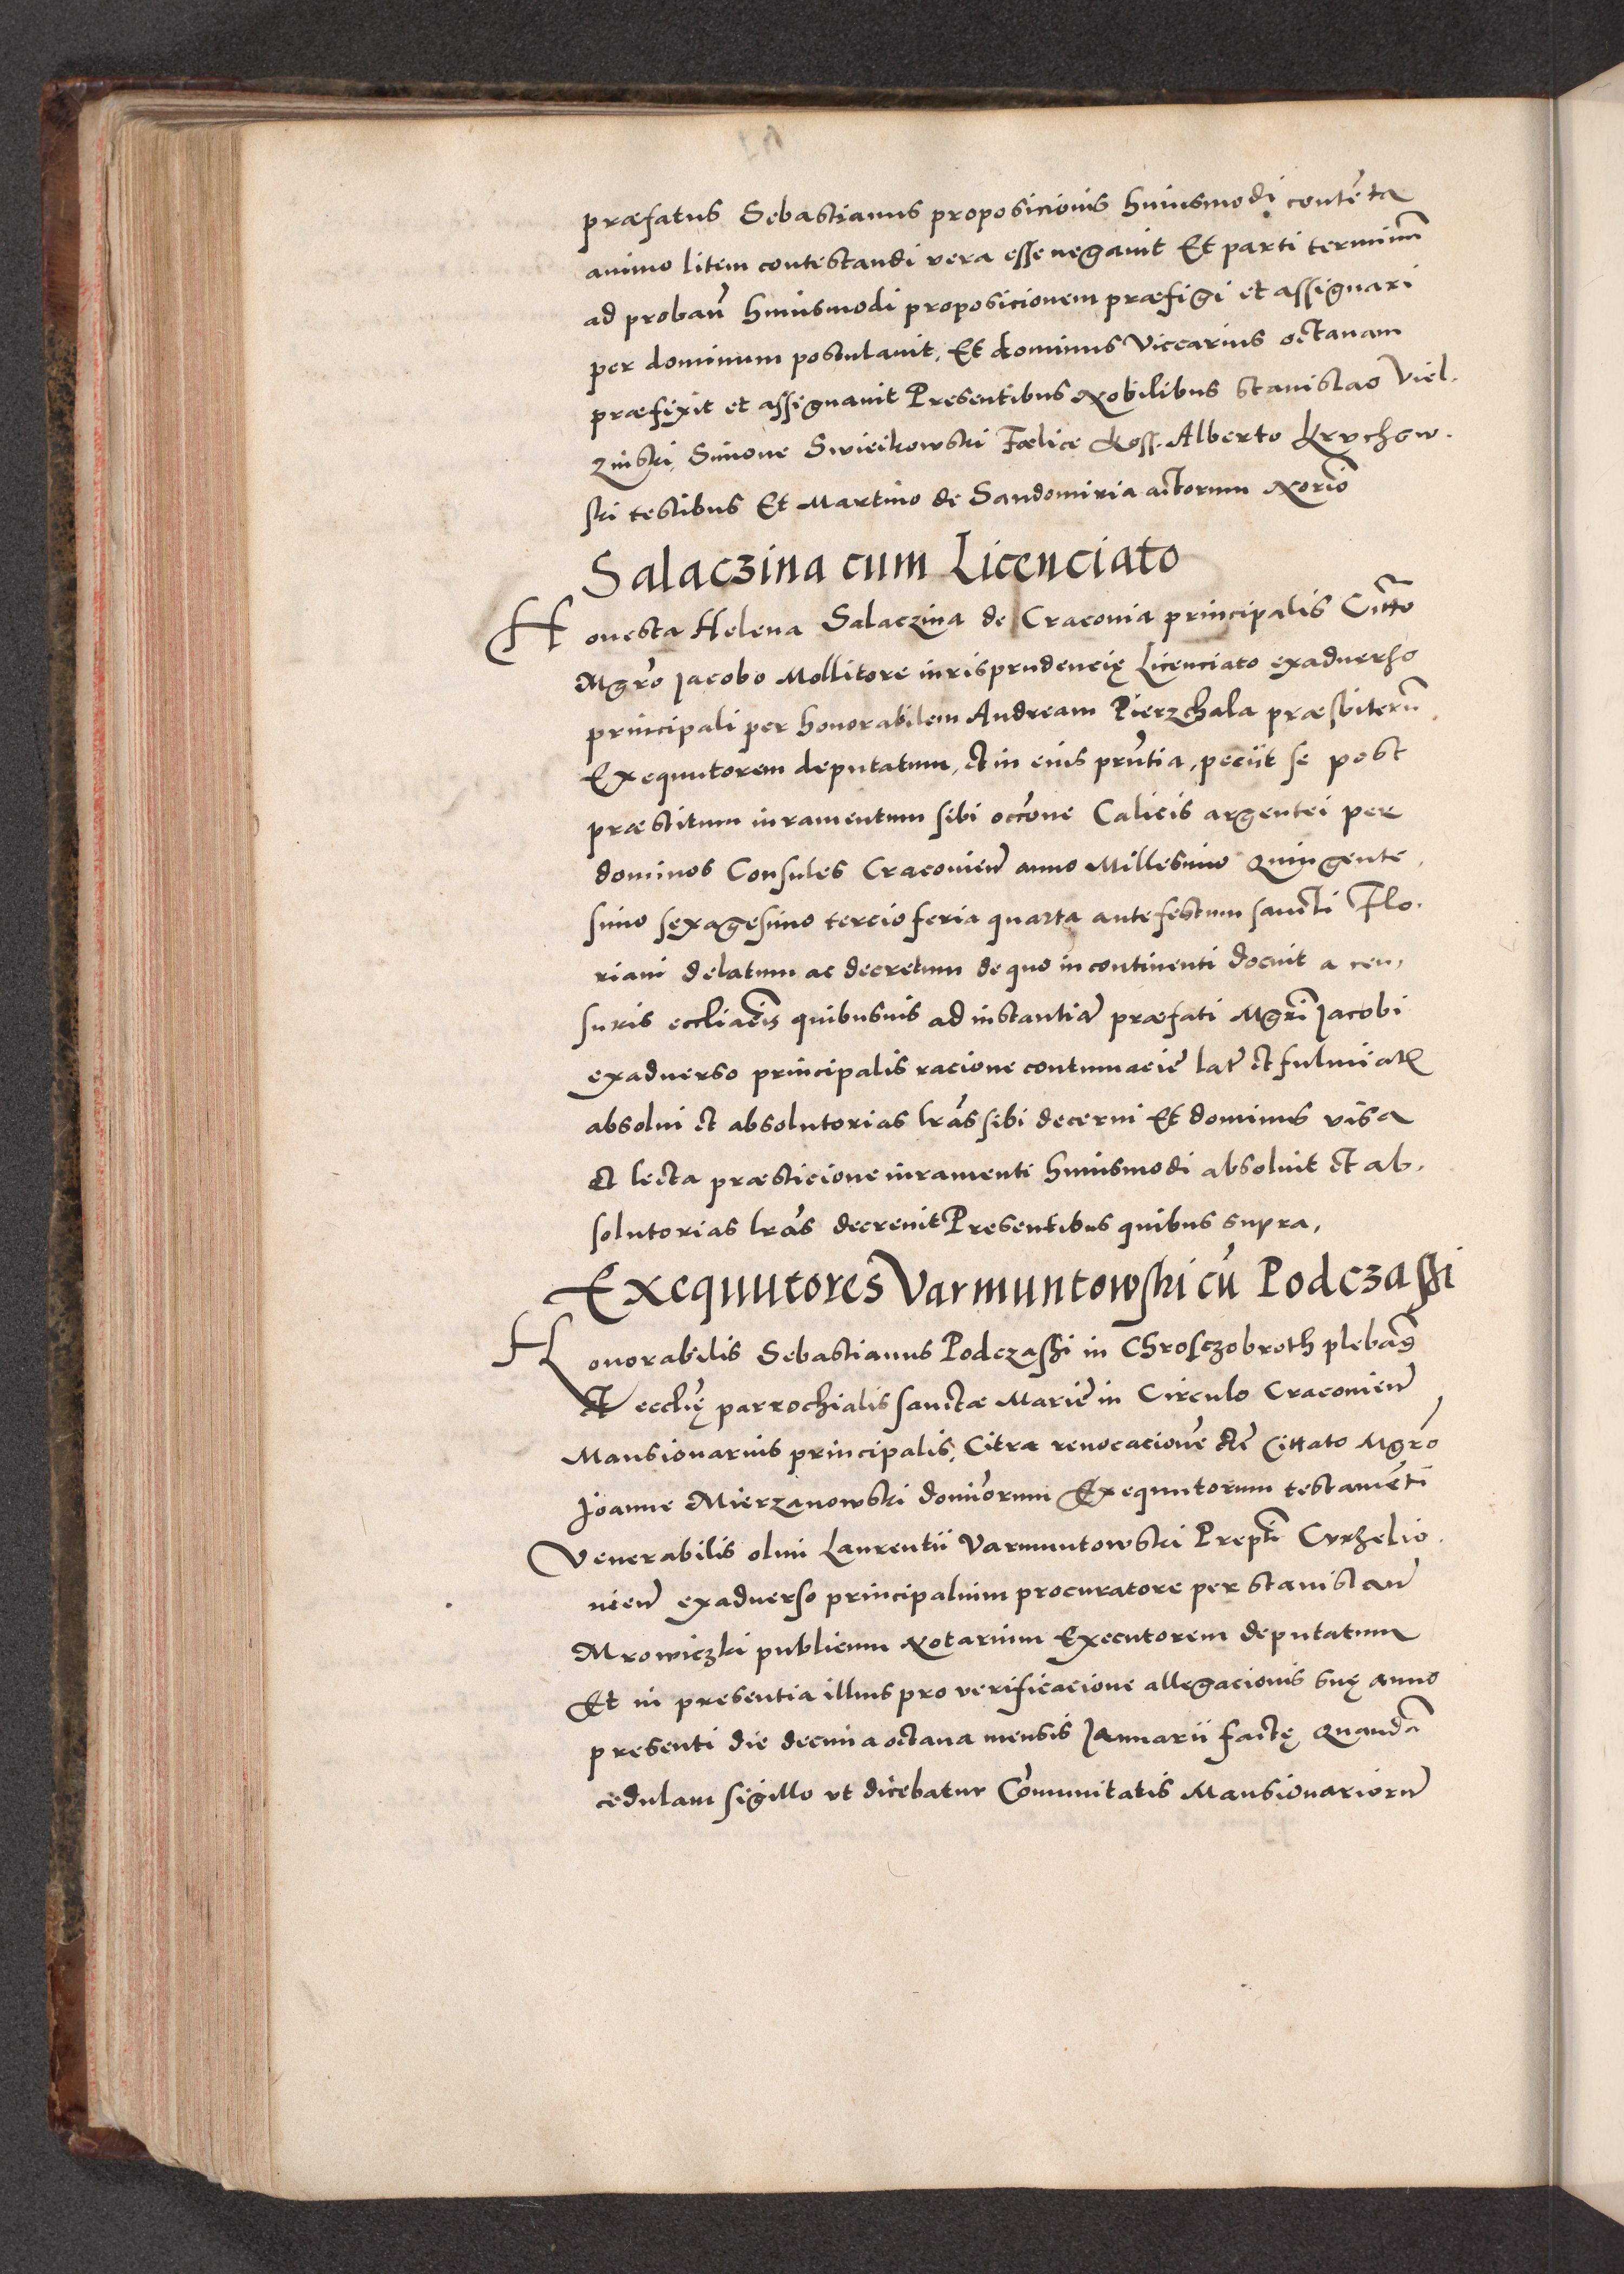 præfatus Sebastianus proposicionis huiusmodi contēta
animo litem contestandi vera esse negavit Et parti terminū
ad probañ huiusmodi proposicionem præfigi et assignari
per dominum postulavit, Et dominus Vicearius octavam
præfixit et assignavit Presentibus Nobilibus Stanislao Viel.
zinski, Simone Swieikowski Fælice Ross. Alberto Krvchow.
ski testibus Et Martino de Sandomiria actorum Norio
Salaczina cum Licenciato
Honesta Helena Salaczina de Cracovia principalis Citto
Mgro Jacobo Mollitore iurisprudencię Licenciato exadverso
principali per honorabilem Andream Pierzchala præsbiterū
Exequutorem deputatum, et in eius prntia, peciit se post
præstitum iuramentum sibi occone Calicis argentei per
dominos Consules Cracovien̄ anno Millesimo Quingente,
simo sexagesimo tercio feria quarta ante festum sancti Flo.
riani delatum ac decretum de quo in continenti docuit a cen,
suris eccliacis quibusvis ad instantiā præfati Mgri Jacobi
exadverso principalis racione contumacie lat̄ et fulmiat
absolvi et absolutorias lras sibi decerni Et dominus visa
et lecta præsticione iuramenti huiusmodi absolvit et ab,
solutorias lras decrevit Presentibus quibus supra,
Exequutores Varmuntowski cū Podczaski
Honorabilis Sebastianus Podczaski in Chrosczobroth plebans
Et ecclię parrochialis sanctæ Marie in Circulo Cracovien̄
Mansionarius principalis, Citra revocacione etc̄ Cittato Mgro
Joanne Mierzanowski dominorum Exequutorum testamenti
Venerabilis olim Laurentii Varmuntowski Prepti Cvrzelio.
vien̄ exadverso principalium procuratore per Stanislaū
Mrowiczki publicum Notarium Executorem deputatum
Et in presentia illius pro verificacione allegacionis suę anno
presenti die decima octava mensis Januarii factę Quandā
cedulam sigillo ut dicebatur Cōmunitatis Mansionariorū